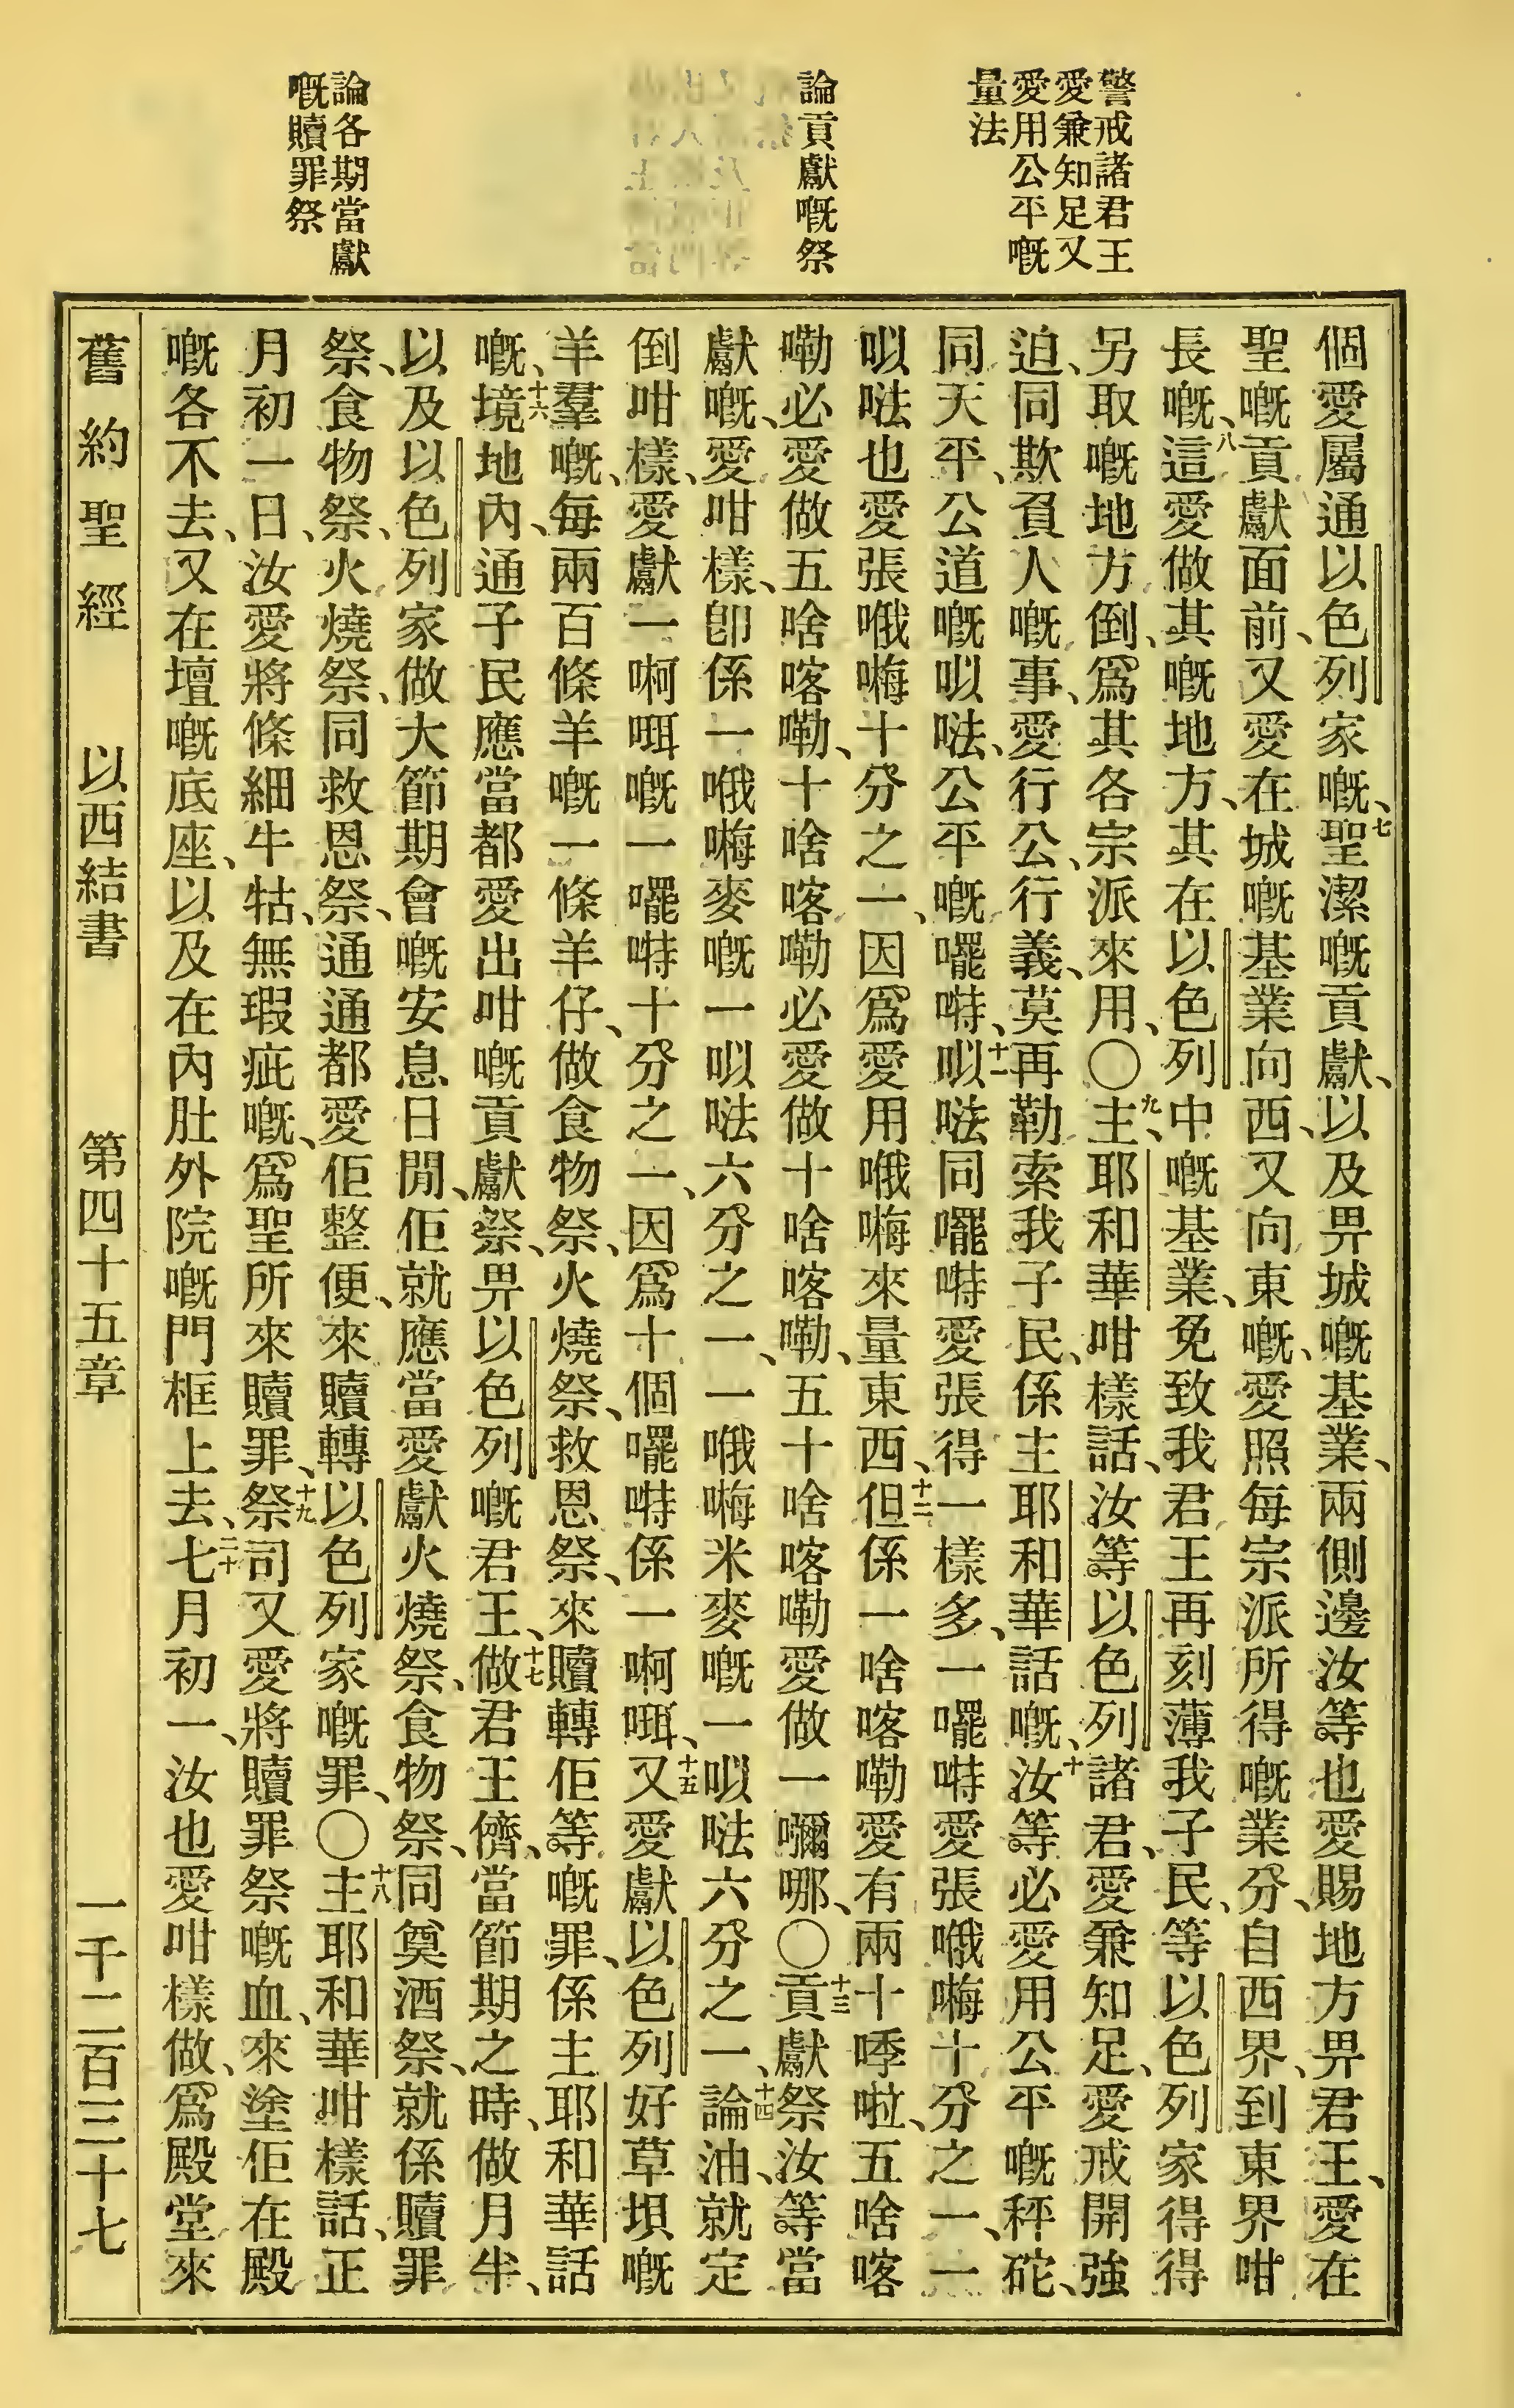 警戒諸君王
愛兼知足又
愛用公平嘅
量法
論貢獻嘅祭
論各期當獻
嘅贖罪祭
個愛屬通以色列家嘅、七聖潔嘅貢獻、以及畀城嘅基業、兩側邊汝等也愛賜地方畀君王、愛在
聖嘅貢獻面前、又愛在城嘅基業向西、又向東嘅、愛照每宗派所得嘅業分、自西界、到東界咁
長嘅、八這愛做其嘅地方、其在以色列中嘅基業、免致我君王再刻薄我子民、等以色列家得得
另取嘅地方倒、爲其各宗派來用、〇九主、耶和華咁樣話、汝等以色列諸君、愛兼知足、愛戒開強
迫、同欺負人嘅事、愛行公、行義、莫再勒索我子民、係主耶和華話嘅、十汝等必愛用公平嘅秤砣、
同天平、公道嘅㕥㕸、公平嘅𡄔㖷、十一㕥㕸同𡄔㖷愛張得一樣多、一𡄔㖷愛張㖿𠸍十分之一、一
㕥㕸也愛張㖿𠸍十分之一、因爲愛用㖿𠸍來量東西、十二但係一啥喀嘞愛有兩十㖀啦、五啥喀
嘞必愛做五啥喀嘞、十啥喀嘞必愛做十啥喀嘞、五十啥喀嘞愛做一嚫哪、〇十三貢獻祭汝等當
獻嘅、愛咁樣、卽係一㖿𠸍麥嘅一㕥㕸六分之一、一㖿𠸍米麥嘅一㕥㕸六分之一、十四論油、就定
倒咁樣、愛獻一啊㖇嘅一𡄔㖷十分之一、因爲十個𡄔㖷係一啊㖇、十五又愛獻以色列好草垻嘅
羊羣嘅、每兩百條羊嘅一條羊仔、做食物祭、火燒祭、救恩祭、來贖轉佢等嘅罪、係主耶和華話
嘅、十六境地內、通子民應當都愛出咁嘅貢獻祭、畀以色列嘅君王、十七做君王儕、當節期之時、做月半、
以及以色列家做大節期會嘅安息日閒、佢就應當愛獻火燒祭、食物祭、同奠酒祭、就係贖罪
祭、食物祭、火燒祭、同救恩祭、通通都愛佢整便、來贖轉以色列家嘅罪、〇十八主耶和華咁樣話、正
月初一日、汝愛將條細牛牯、無瑕疵嘅、爲聖所來贖罪、十九祭司又愛將贖罪祭嘅血、來塗佢在殿
嘅各不去、又在壇嘅底座、以及在內肚外院嘅門框上去、二十七月初一、汝也愛咁樣做、爲殿堂來
舊約聖經 以西結書 第四十五章 一千二百三十七